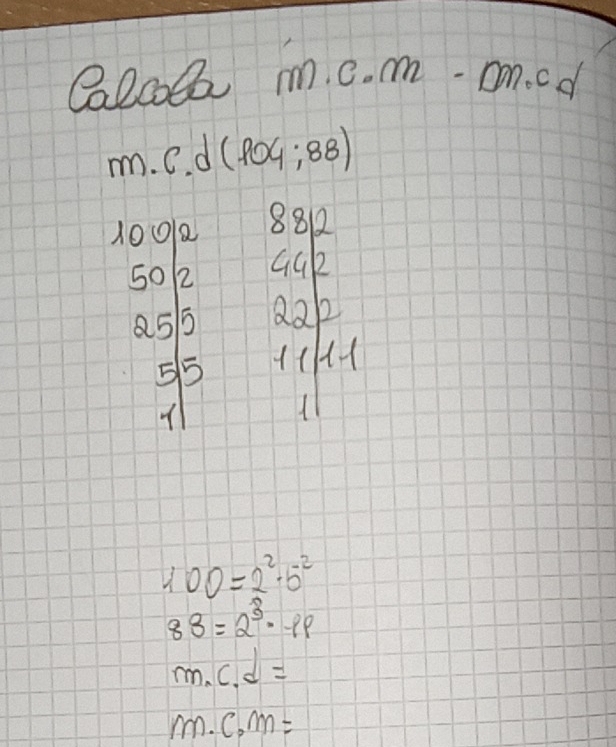 Calcola m.c.m - m.c.d
m.c.d (104; 88)
100|2 88|2
50|2 44|2
25|5 22|2
5|5 11|11
1| 1|
100 = 2²·5²
88 = 2³·11
m.c.d =
m.c.m =